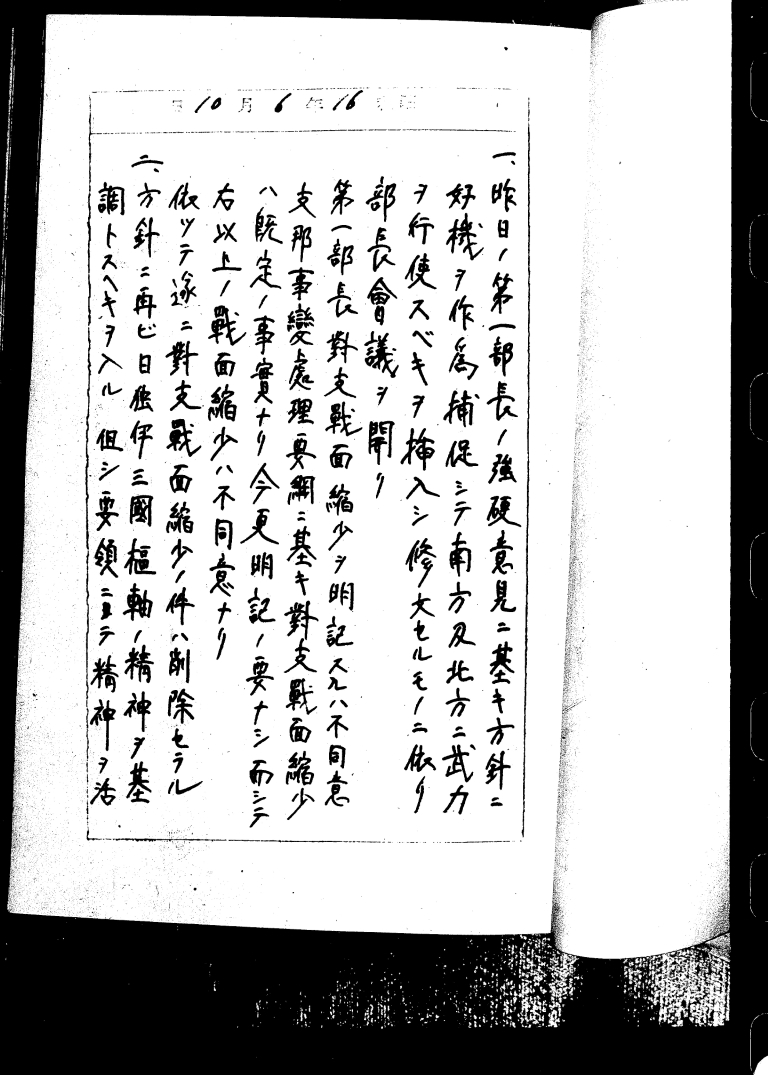 昭和16年6月10日
一、昨日ノ第一部長ノ強硬意見ニ基キ方針ニ
好機ヲ作為捕促シテ南方及北方ニ武力
ヲ行使スベキヲ挿入シ修文セルモノニ依リ
部長會議ヲ開ク
第一部長對支戰面縮少ヲ明記スルハ不同意
支那事變處理要綱ニ基キ對支戰面縮少
ハ既定ノ事實ナリ今更明記ノ要ナシ而シテ
右以上ノ戰面縮少ハ不同意ナリ
依ツテ遂ニ對支戰面縮少ノ件ハ削除セラル
二、方針ニ再ビ日獨伊三國樞軸ノ精神ヲ基
調トスヘキヲ入ル 但シ要領ニ於テ精神ヲ活